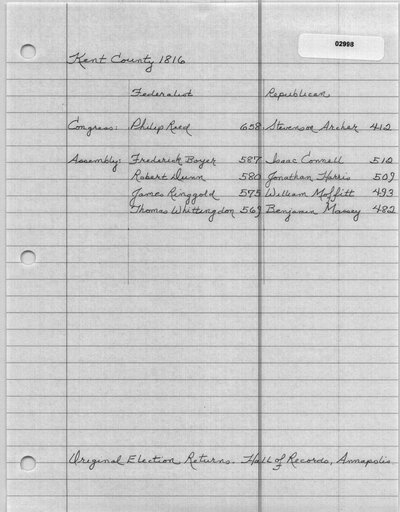 02998
Kent County 1816
Federalist Republican
Congress: Philip Reed 658 Stevenson Archer 412
Assembly: Frederick Boyer 587 Isaac Connell 512
Robert Dunn 580 Jonathan Harris 509
James Ringgold 575 William Moffitt 493
Thomas Whittingdon 569 Benjamin Massey 482
Original Election Returns. Hall of Records, Annapolis